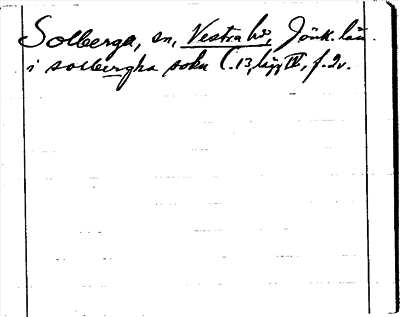 Solberga, sn, Vestra hd, Jönk. län.
i solbergha sokn C.13, lägg IV, f. 2v.